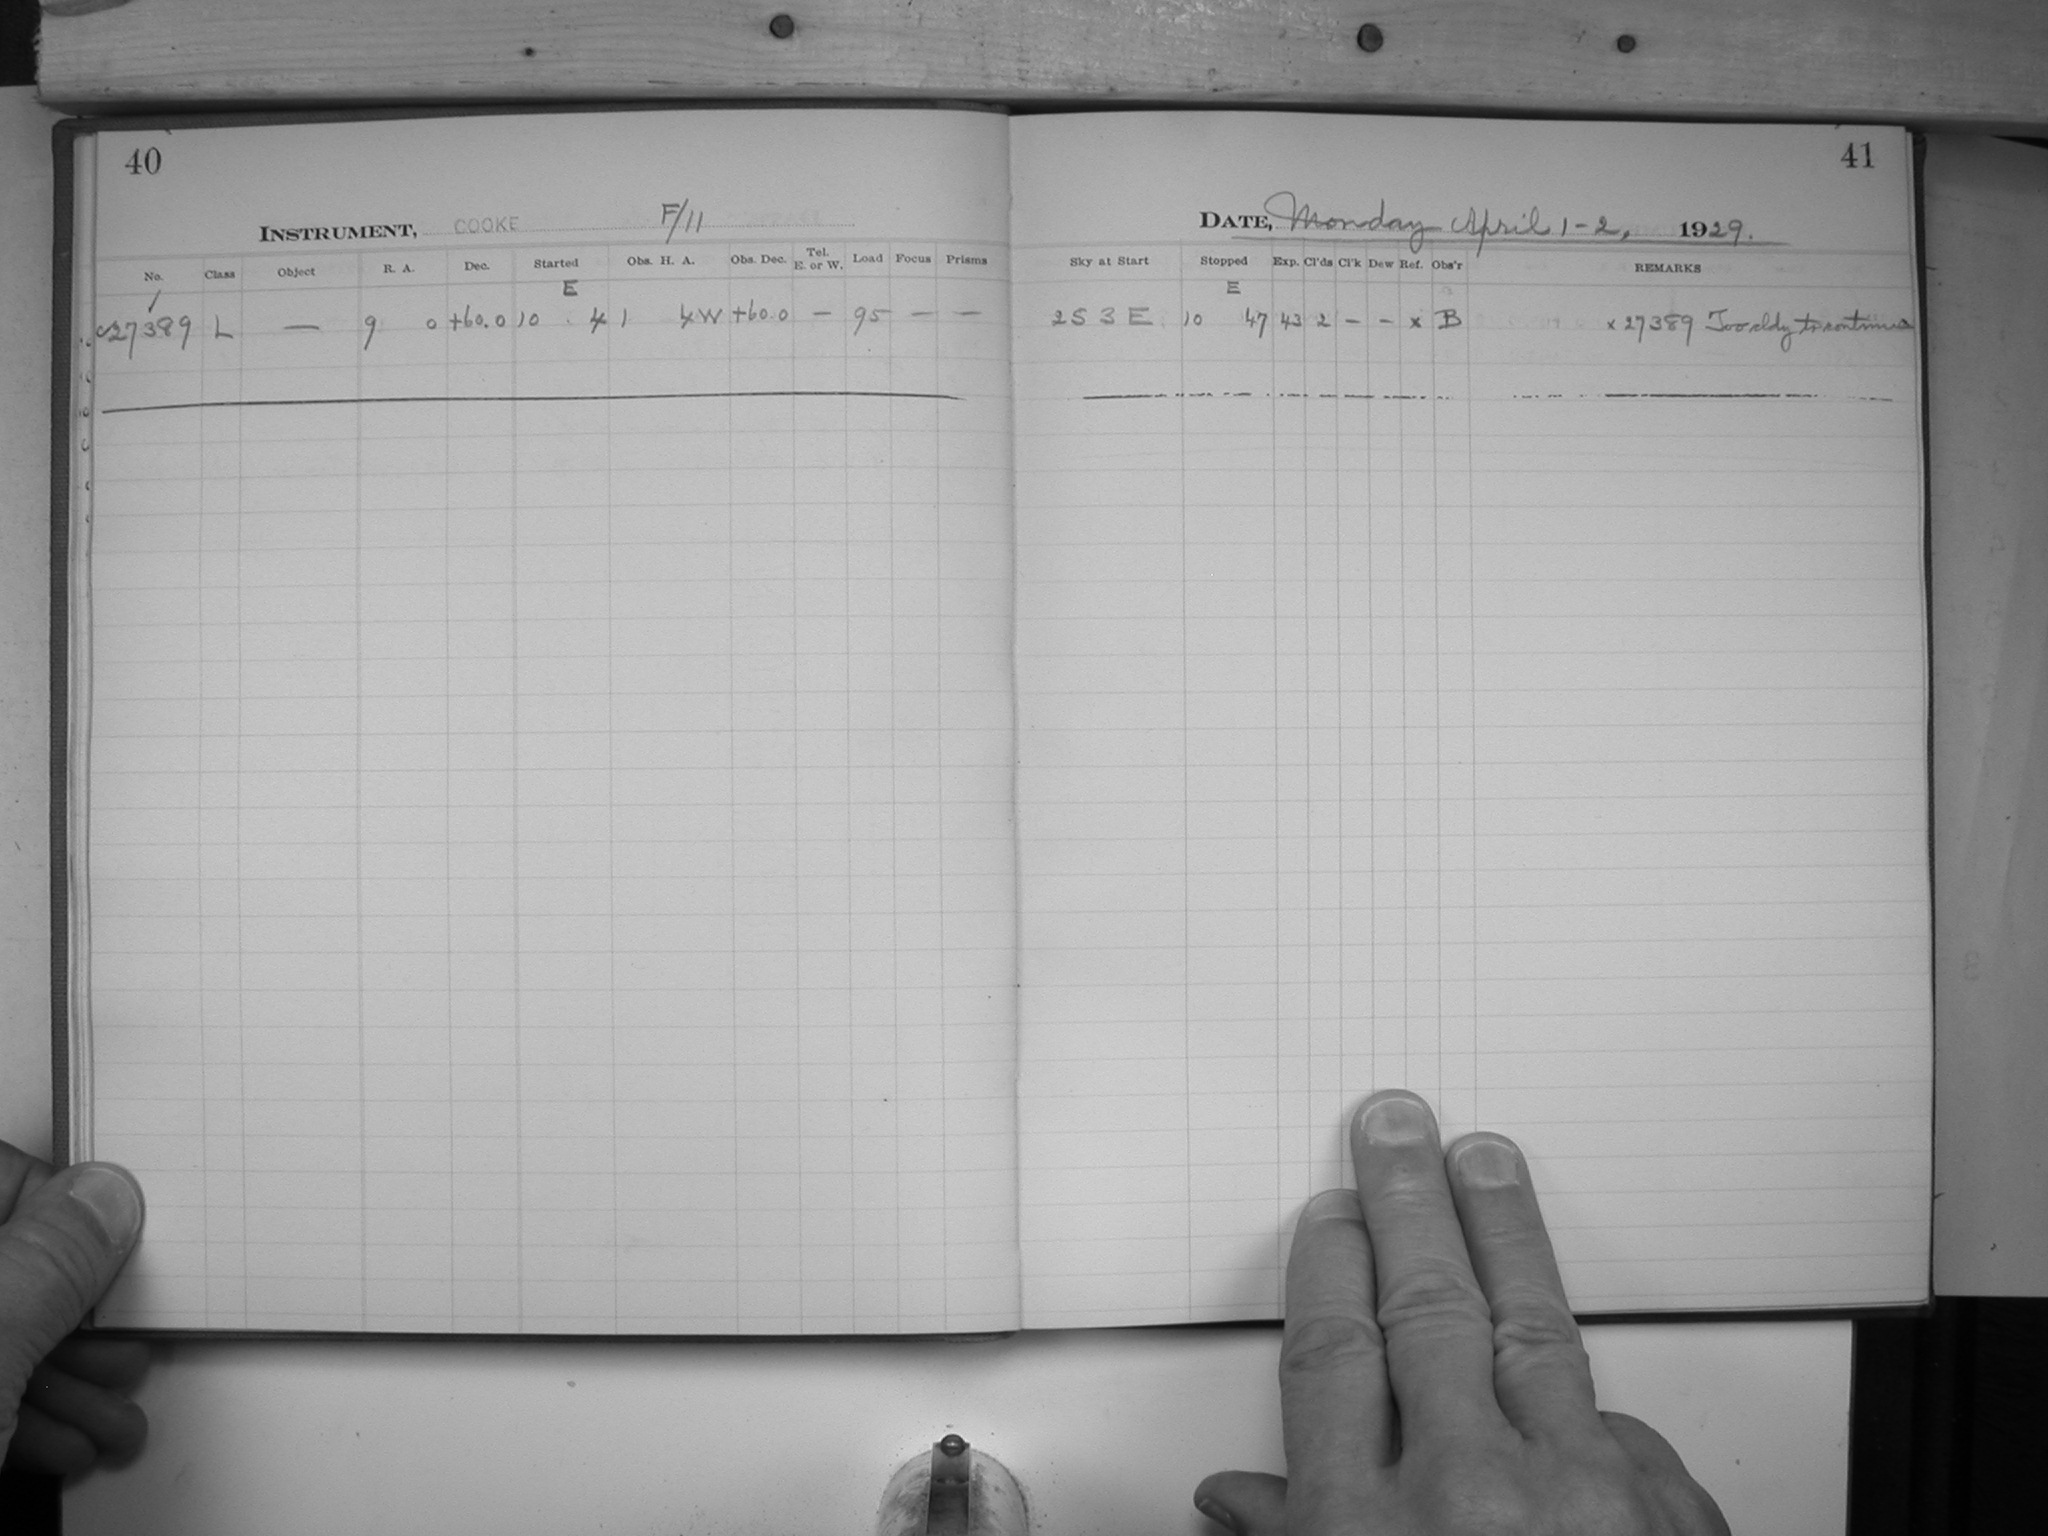 40
INSTRUMENT, COOKE F/11
No. Class Object R. A. Dec. Started Obs. H. A. Obs. Dec. Tel. E. or W. Load Focus Prisms
E
27389 L — 9 0 +60.0 10 4 1 4W +60.0 — 95 — —
41
DATE, Monday April 1-2, 1929.
Sky at Start Stopped Exp. Cl'ds Cl'k Dew Ref. Obs'r REMARKS
E
2 S 3 E 10 47 43 2 - - x B x 27389 Too cldy to continue